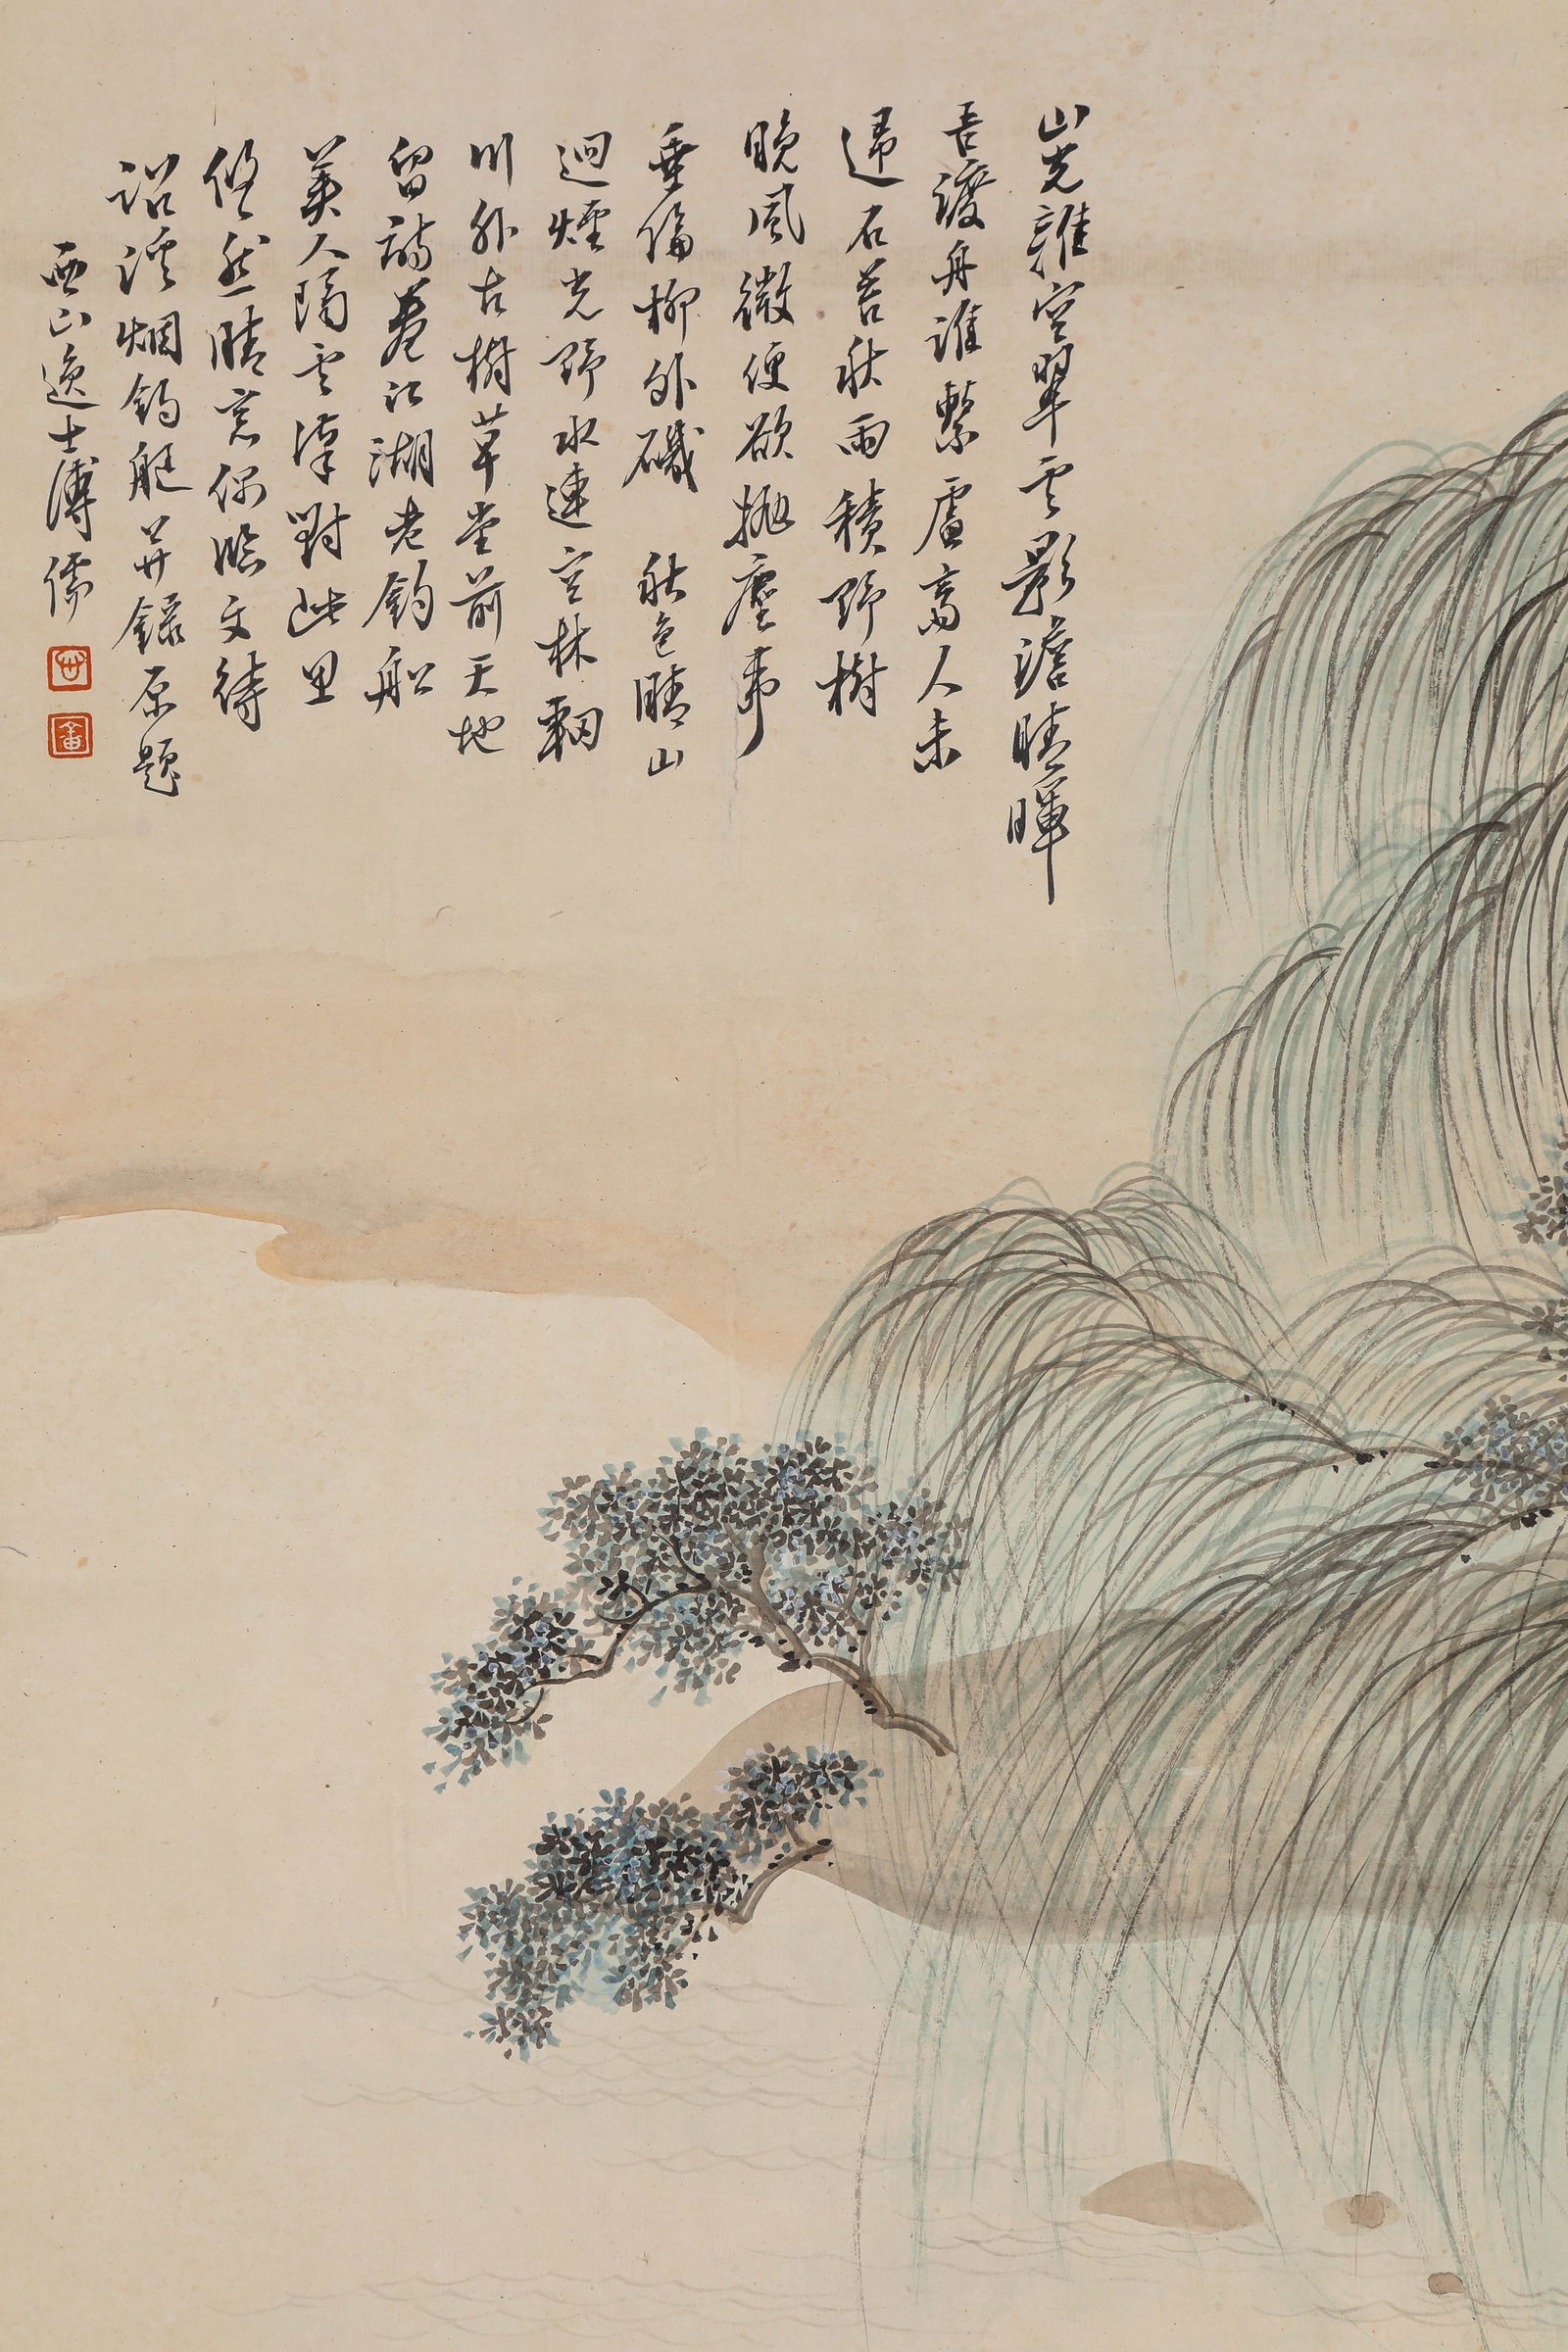 山光雜空翠雲影澹晴暉
古渡舟誰繫廬高人未
歸石苔秋雨積野樹
晚風微便欲拋塵事
垂綸柳外磯 秋色晴山
迴煙光野水連空林輞
川外古樹草堂前天地
留詩卷江湖老釣船
美人隔雲漢對此思
悠然晴窗偶臨文待
詔溪烟釣艇并錄原題
西山逸士溥儒